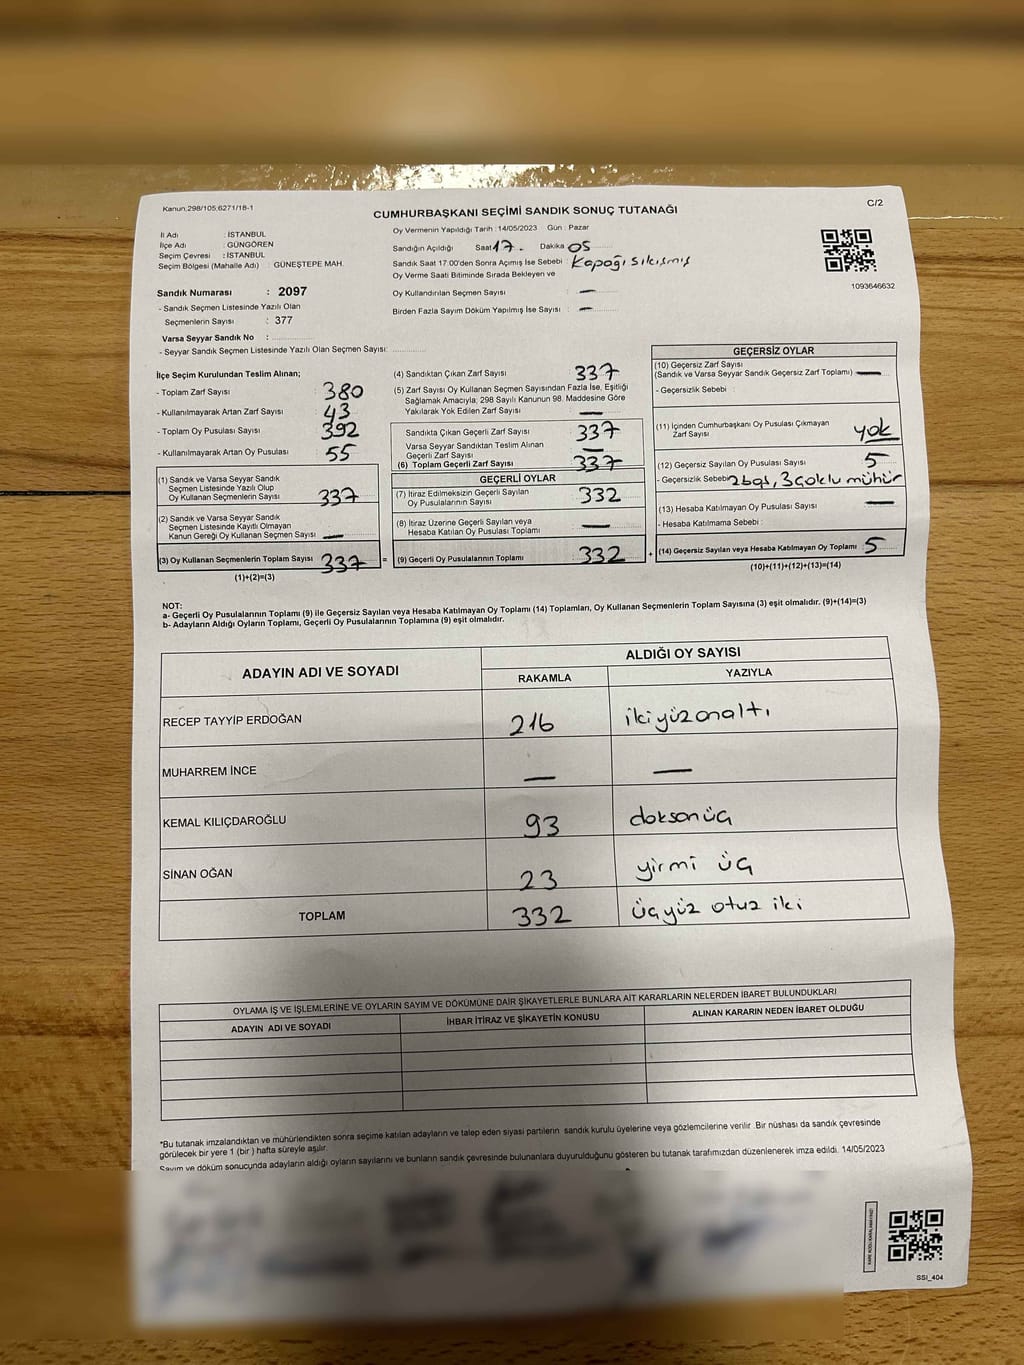 Kanun.298/105,6271/18-1
C/2
CUMHURBAŞKANI SEÇİMİ SANDIK SONUÇ TUTANAĞI
İl Adı : İSTANBUL
İlçe Adı : GÜNGÖREN
Seçim Çevresi : İSTANBUL
Seçim Bölgesi (Mahalle Adı) : GÜNEŞTEPE MAH.
Sandık Numarası : 2097
- Sandık Seçmen Listesinde Yazılı Olan
Seçmenlerin Sayısı : 377
Varsa Seyyar Sandık No :
- Seyyar Sandık Seçmen Listesinde Yazılı Olan Seçmen Sayısı:
Oy Vermenin Yapıldığı Tarih :14/05/2023 Gün : Pazar
Sandığın Açıldığı Saat 17. Dakika 05
Sandık Saat 17:00'den Sonra Açımış İse Sebebi : Kapağı sıkışmış
Oy Verme Saati Bitiminde Sırada Bekleyen ve
Oy Kullandırılan Seçmen Sayısı : —
Birden Fazla Sayım Döküm Yapılmış İse Sayısı : —
1093646632
İlçe Seçim Kurulundan Teslim Alınan;
- Toplam Zarf Sayısı : 380
- Kullanılmayarak Artan Zarf Sayısı : 43
- Toplam Oy Pusulası Sayısı : 392
- Kullanılmayarak Artan Oy Pusulası : 55
(1) Sandık ve Varsa Seyyar Sandık
Seçmen Listesinde Yazılı Olup
Oy Kullanan Seçmenlerin Sayısı : 337
(2) Sandık ve Varsa Seyyar Sandık
Seçmen Listesinde Kayıtlı Olmayan
Kanun Gereği Oy Kullanan Seçmen Sayısı : —
(3) Oy Kullanan Seçmenlerin Toplam Sayısı : 337
(1)+(2)=(3)
(4) Sandıktan Çıkan Zarf Sayısı : 337
(5) Zarf Sayısı Oy Kullanan Seçmen Sayısından Fazla İse, Eşitliği
Sağlamak Amacıyla; 298 Sayılı Kanunun 98. Maddesine Göre
Yakılarak Yok Edilen Zarf Sayısı : —
Sandıkta Çıkan Geçerli Zarf Sayısı : 337
Varsa Seyyar Sandıktan Teslim Alınan
Geçerli Zarf Sayısı : —
(6) Toplam Geçerli Zarf Sayısı : 337
GEÇERLİ OYLAR
(7) İtiraz Edilmeksizin Geçerli Sayılan
Oy Pusulalarının Sayısı : 332
(8) İtiraz Üzerine Geçerli Sayılan veya
Hesaba Katılan Oy Pusulası Toplamı : —
= (9) Geçerli Oy Pusulalarının Toplamı : 332
GEÇERSİZ OYLAR
(10) Geçersiz Zarf Sayısı
(Sandık ve Varsa Seyyar Sandık Geçersiz Zarf Toplamı) : —
- Geçersizlik Sebebi :
(11) İçinden Cumhurbaşkanı Oy Pusulası Çıkmayan
Zarf Sayısı : yok
(12) Geçersiz Sayılan Oy Pusulası Sayısı : 5
- Geçersizlik Sebebi : 2 boş, 3 çoklu mühür
(13) Hesaba Katılmayan Oy Pusulası Sayısı : —
- Hesaba Katılmama Sebebi :
+ (14) Geçersiz Sayılan veya Hesaba Katılmayan Oy Toplamı : 5
(10)+(11)+(12)+(13)=(14)
NOT:
a- Geçerli Oy Pusulalarının Toplamı (9) ile Geçersiz Sayılan veya Hesaba Katılmayan Oy Toplamı (14) Toplamları, Oy Kullanan Seçmenlerin Toplam Sayısına (3) eşit olmalıdır. (9)+(14)=(3)
b- Adayların Aldığı Oyların Toplamı, Geçerli Oy Pusulalarının Toplamına (9) eşit olmalıdır.
ADAYIN ADI VE SOYADI
ALDIĞI OY SAYISI
RAKAMLA YAZIYLA
RECEP TAYYİP ERDOĞAN 216 ikiyüzonaltı
MUHARREM İNCE — —
KEMAL KILIÇDAROĞLU 93 doksanüç
SİNAN OĞAN 23 yirmi üç
TOPLAM 332 üçyüz otuz iki
OYLAMA İŞ VE İŞLEMLERİNE VE OYLARIN SAYIM VE DÖKÜMÜNE DAİR ŞİKAYETLERLE BUNLARA AİT KARARLARIN NELERDEN İBARET BULUNDUKLARI
ADAYIN ADI VE SOYADI İHBAR İTİRAZ VE ŞİKAYETİN KONUSU ALINAN KARARIN NEDEN İBARET OLDUĞU
*Bu tutanak imzalandıktan ve mühürlendikten sonra seçime katılan adayların ve talep eden siyasi partilerin sandık kurulu üyelerine veya gözlemcilerine verilir .Bir nüshası da sandık çevresinde
görülecek bir yere 1 (bir) hafta süreyle asılır.
Sayım ve döküm sonucunda adayların aldığı oyların sayılarını ve bunların sandık çevresinde bulunanlara duyurulduğunu gösteren bu tutanak tarafımızdan düzenlenerek imza edildi. 14/05/2023
SSI_404